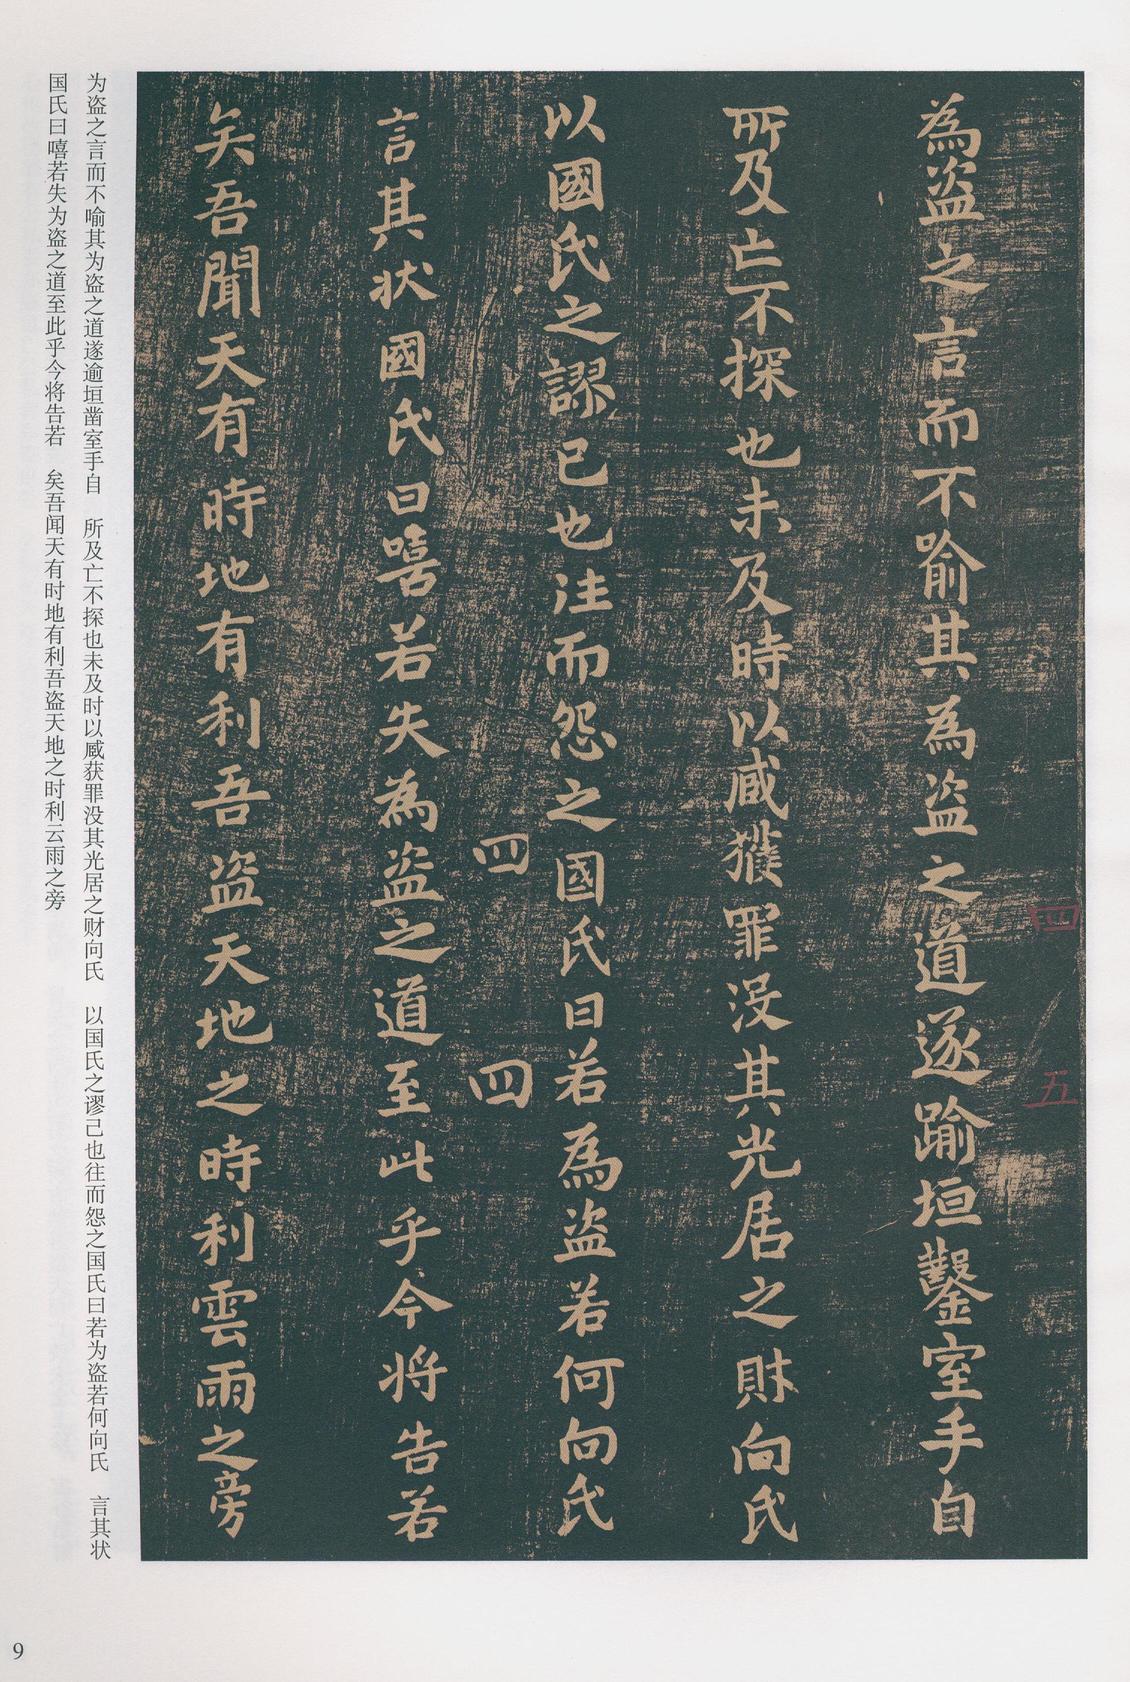 為盗之言而不喻其為盗之道遂踰垣鑿室手自
所及亡不探也未及時以臧獲罪没其光居之財向氏
以國氏之謬己也注而怨之國氏曰若為盗若何向氏
言其状國氏曰嘻若失為盗之道至此乎今将告若
矣吾聞天有時地有利吾盗天地之時利雲雨之旁
四
五
四
四
为盗之言而不喻其为盗之道遂逾垣凿室手自 所及亡不探也未及时以臧获罪没其光居之财向氏 以国氏之谬己也往而怨之国氏曰若为盗若何向氏 言其状
国氏曰嘻若失为盗之道至此乎今将告若 矣吾闻天有时地有利吾盗天地之时利云雨之旁
9